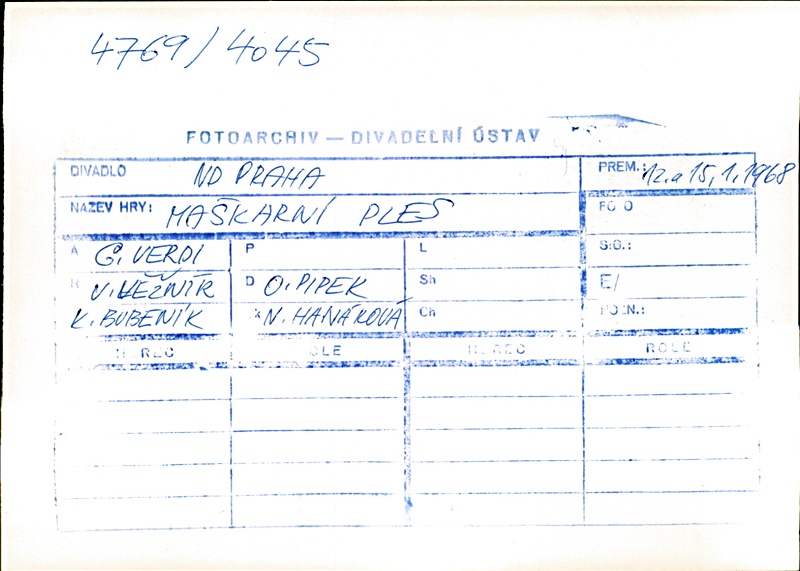 4769/4045
FOTOARCHIV — DIVADELNÍ ÚSTAV
DIVADLO ND PRAHA PREM.: 12. a 15. 1. 1968
NÁZEV HRY: MAŠKARNÍ PLES FOTO
A G. VERDI P L SIG.:
R V. VĚŽNÍK D O. PIPEK Sh E/
K. BUBENÍK k N. HANÁKOVÁ Ch POZN.:
HEREC ROLE HEREC ROLE